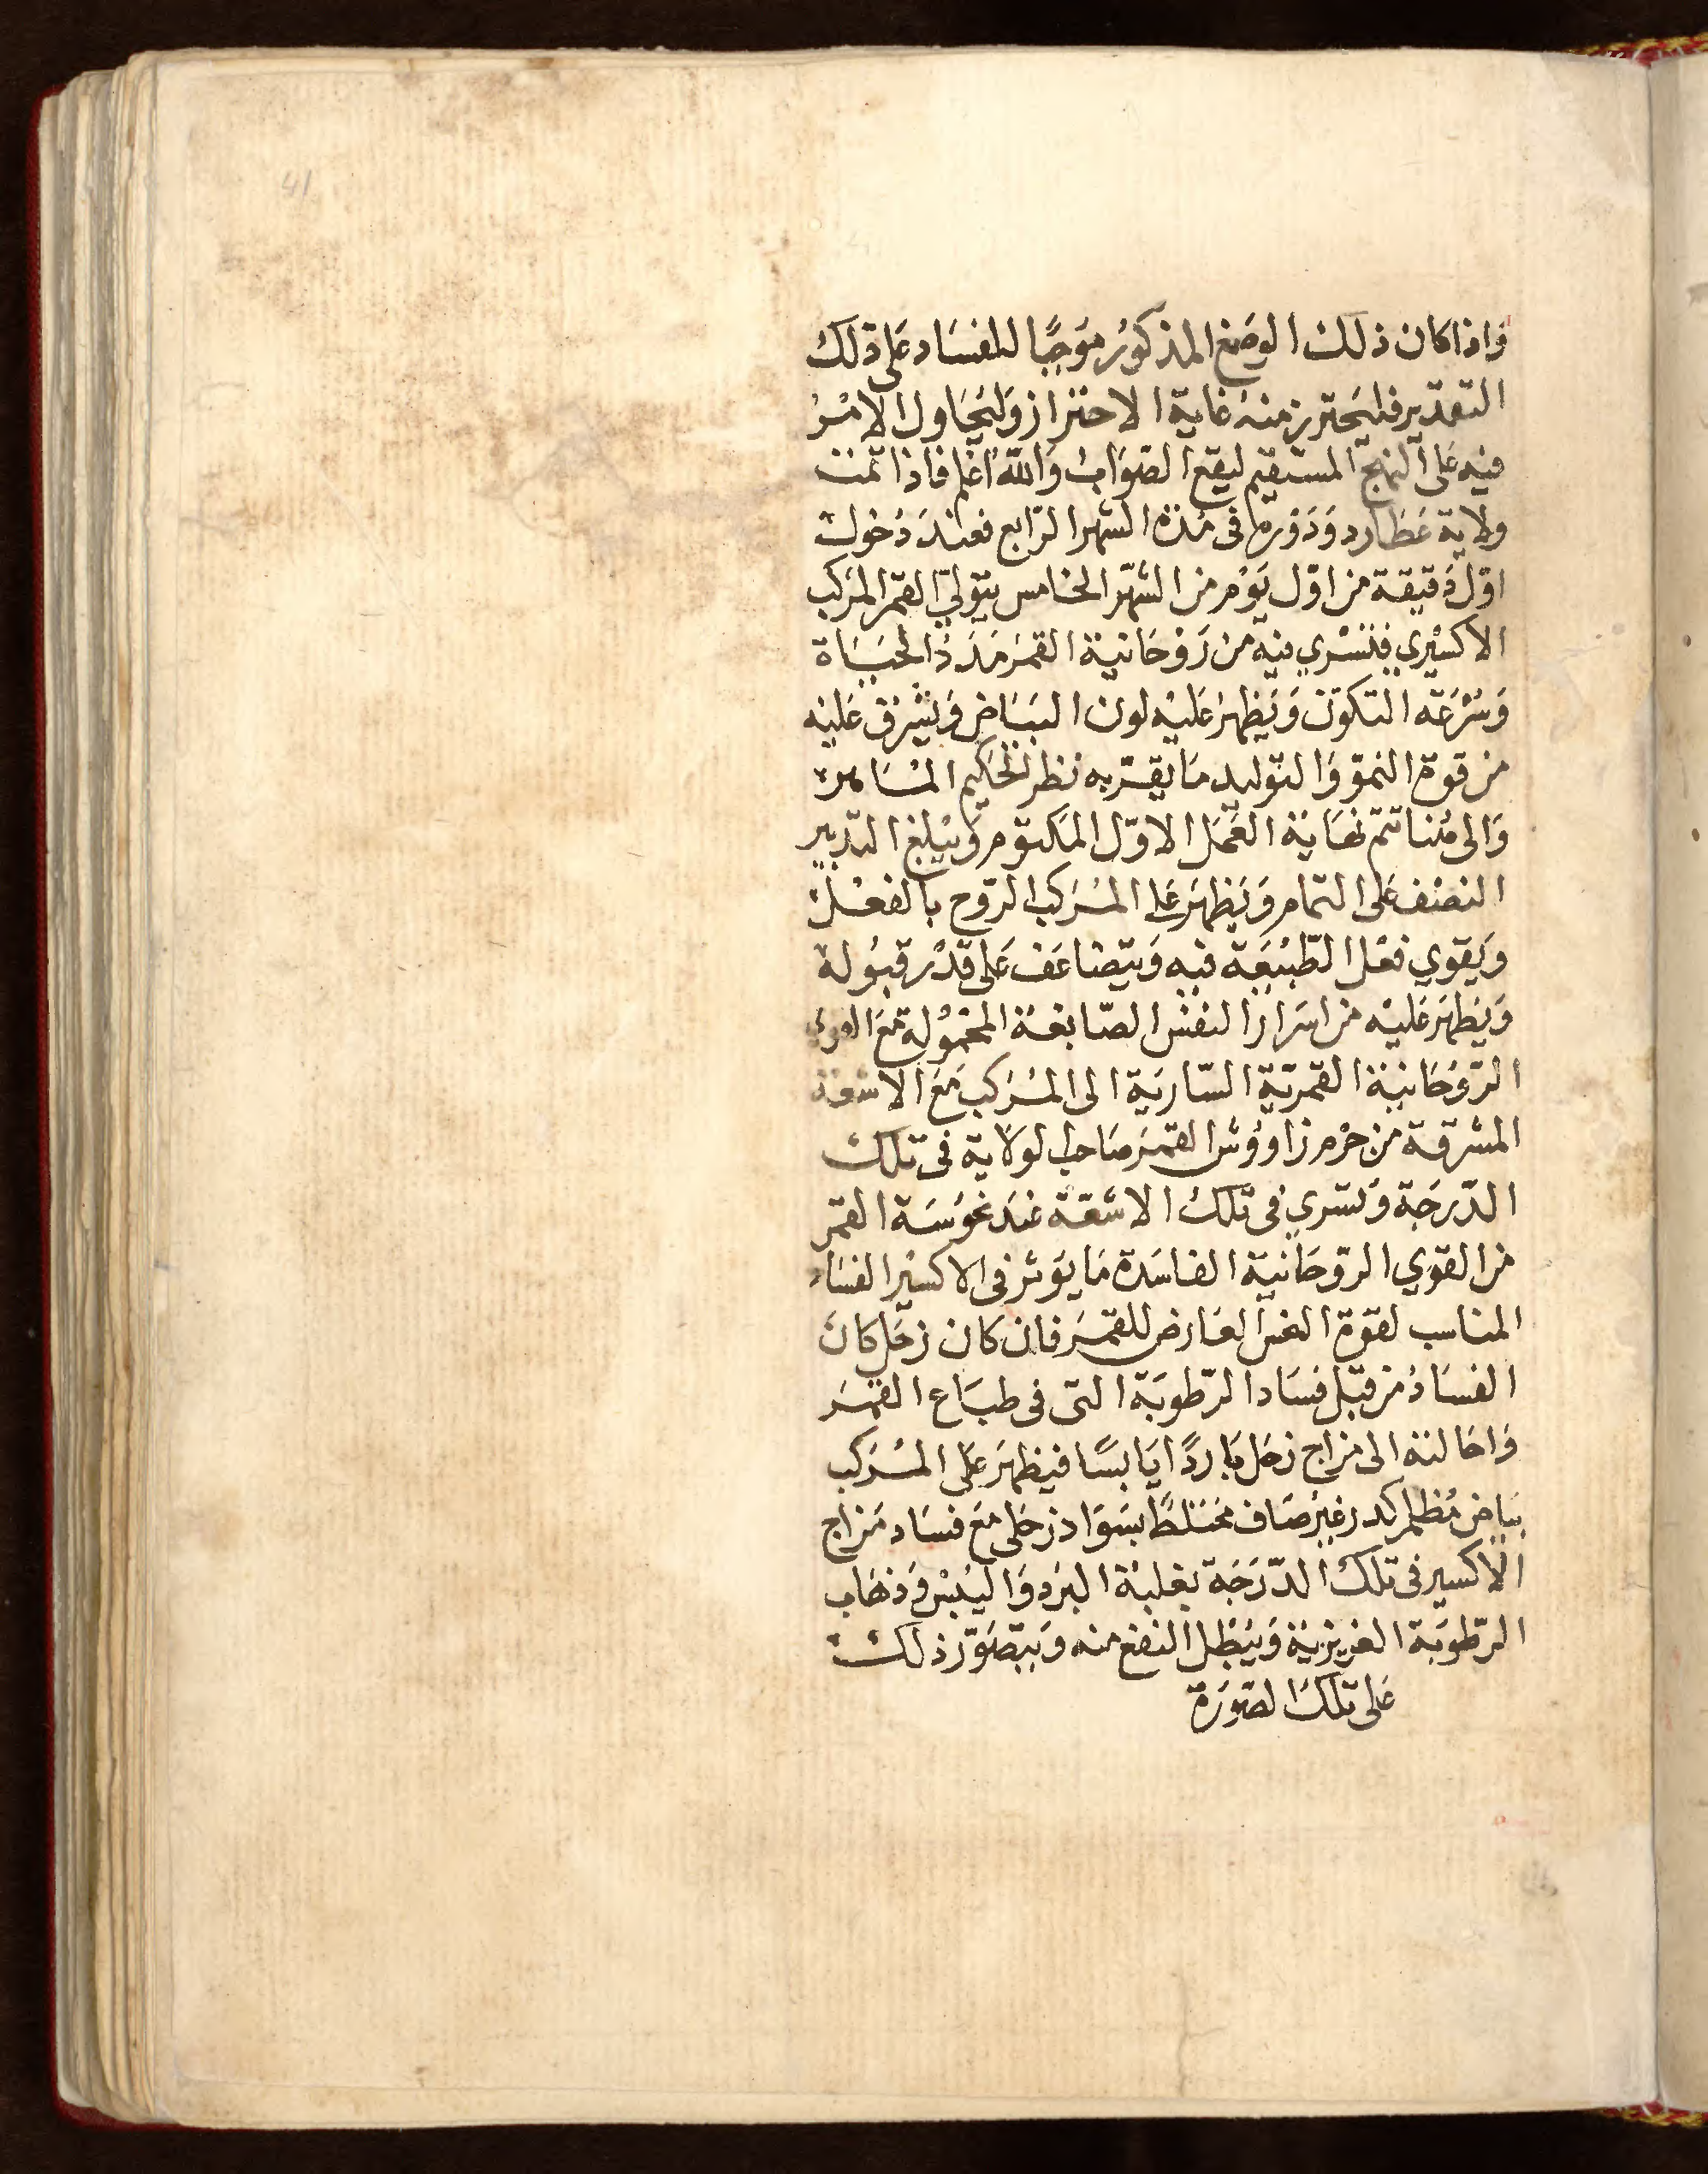 41
فاذا كان ذلك الوضع المذكور موجبًا للفساد على ذلك
التقدير فليحترز منه غاية الاحتراز وليحاول الامر
فيه على النهج المستقيم ليقع الصواب والله اعلم فاذا تمت
ولاية عطارد ودوره فى مدة الشهر الرابع فعند دخول
اوّل دقيقة من اوّل يوم من الشهر الخامس يتولى القمر المركب
الاكسيري فتسري فيه من روحانية القمر مدد الحياة
وسرعة التكوّن ويظهر عليه لون البياض ويشرق عليه
من قوة النموّ والتوليد ما يقرّ به نظر الحكيم الماهر
والى هنا تتم نهاية العمل الاوّل المكتوم ويبلغ التدبير
النصف على التمام ويظهر على المركب الروح بالفعل
ويقوي فعل الطبيعة فيه ويتضاعف على قدر قبوله
ويظهر عليه من اسرار النفس الصابغة المحمولة مع القوي
الروحانية القمرية السارية الى المركب مع الاشعة
المشرقة من جرم زاووش القمر صاحب الولاية فى تلك
الدّرجة وتسري فى تلك الاشعة عند نحوسة القمر
من القوي الروحانية الفاسدة ما يوثر فى الاكسير الفساد
المناسب لقوة العارض للقمر فان كان زحل كان
الفسادُ من قبل فساد الرّطوبة التى فى طباع القمر
واحالته الى مزاج زحل باردًا يابسًا فيظهر على المركب
بياض مُظلم كدر غير صاف مختلطًا بسواد زحلى مع فساد مزاج
الاكسير فى تلك الدّرجة بغلبة البرد واليبس وذهاب
الرّطوبة الغريزية ويبطل النفع منه ويتصوّر ذلك
على تلك الصورة